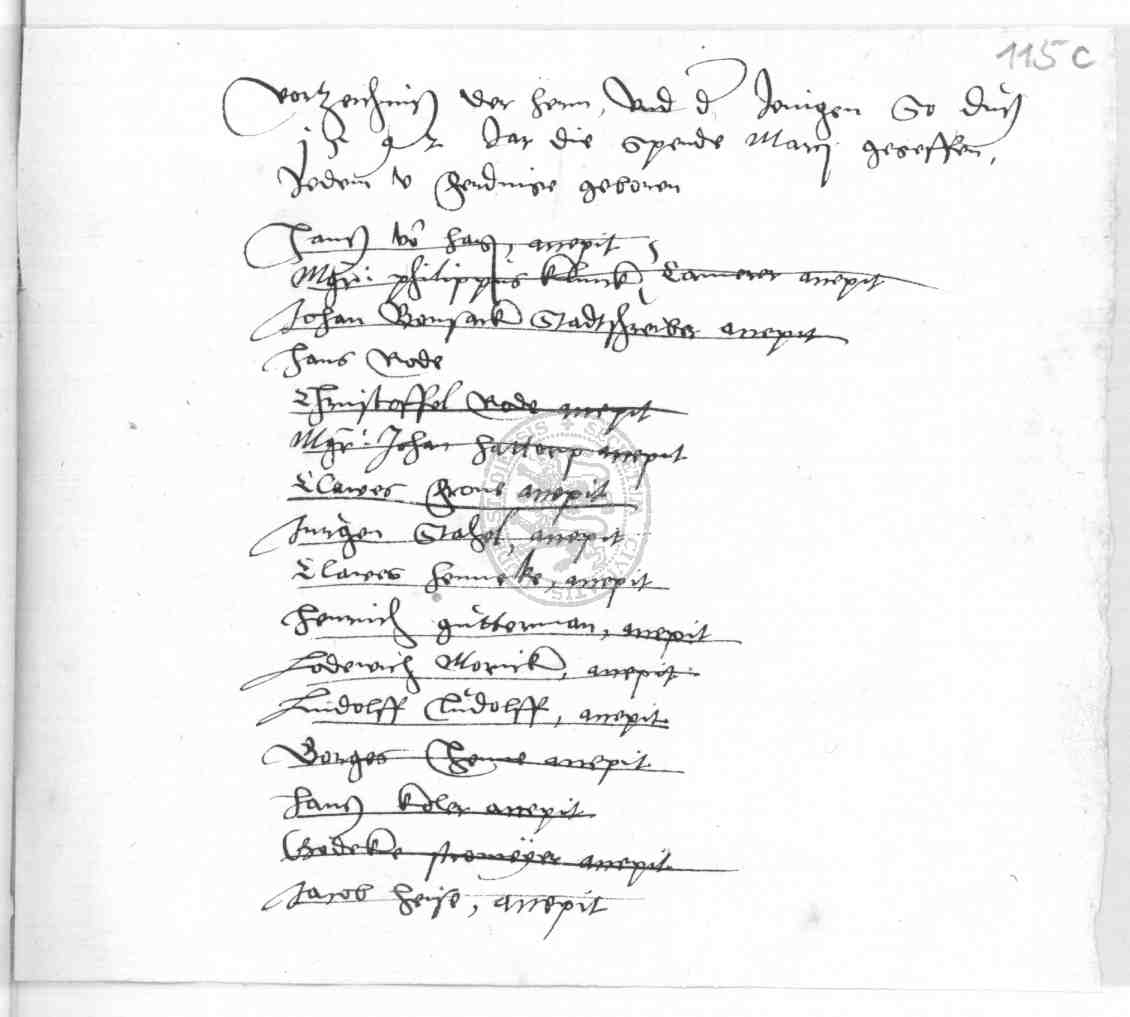 115 c
Vortzeichnis der hern, Vnd d Jenigen So diß
Jar die spende Marci gesessen,
Jedem v geboren
Hans vo hag, accepit
Mgr: philippus Klunk, Camerer accepit
Johan Bonsack Stadtschreiber accepit
Hans Rode
Christoffel Rode accepit
Mgr: Johan Hattorp accepit
Clawes Grone accepit
Jurgen Stahel, accepit
Clawes Henneke, accepit
Henrich gutterman, accepit
Lodewich Morrick, accepit
Ludolff Ludolff, accepit
Borges accepit
Hans Koler accepit
Godeke stromeyer accepit
Jacob Heise, accepit